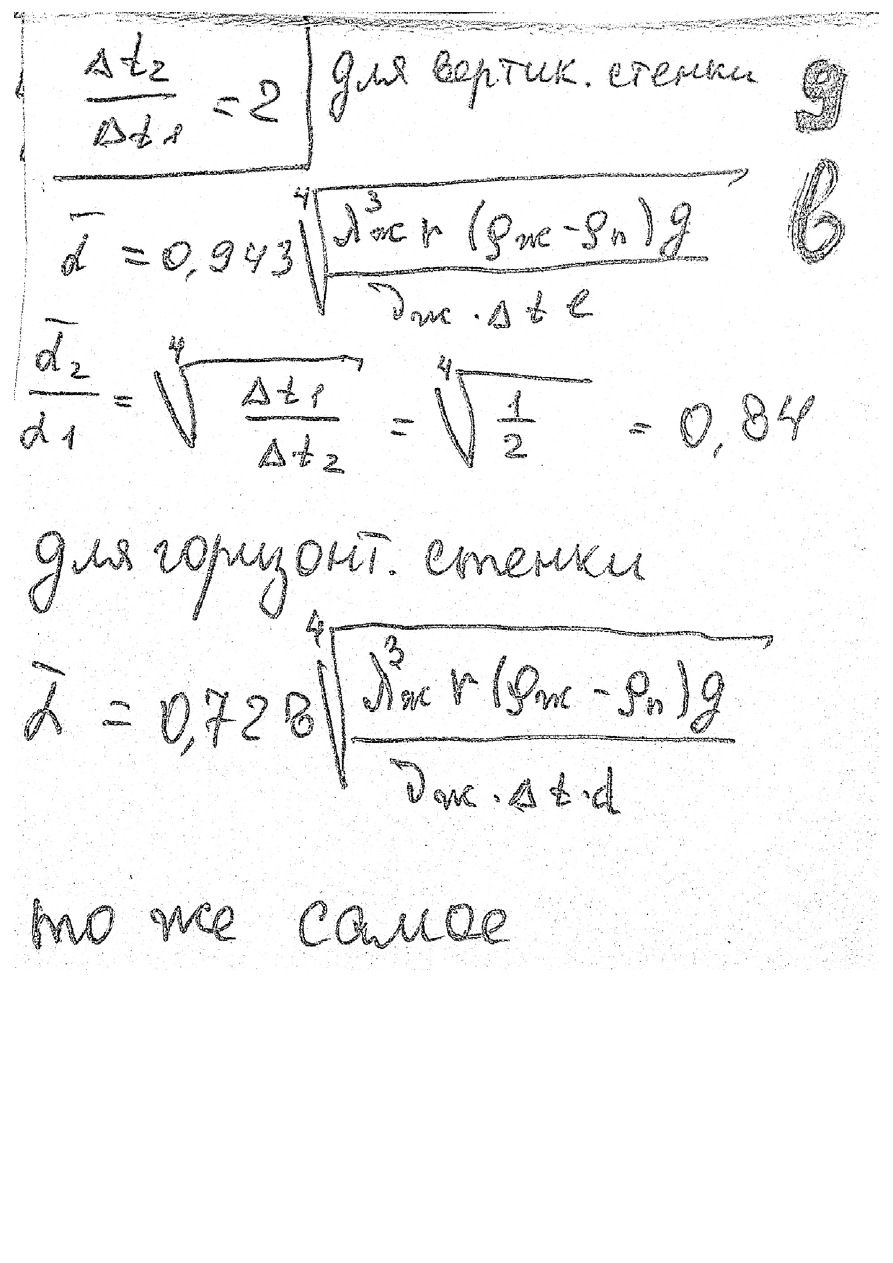 Δt₂/Δt₁ = 2 для вертик. стенки 9
в
ᾱ = 0,943 ⁴√(λ³ж r (ρж - ρп) g / νж · Δt l)
ᾱ₂/α₁ = ⁴√(Δt₁/Δt₂) = ⁴√(1/2) = 0,84
для горизонт. стенки
ᾱ = 0,728 ⁴√(λ³ж r (ρж - ρп) g / νж · Δt · d)
то же самое